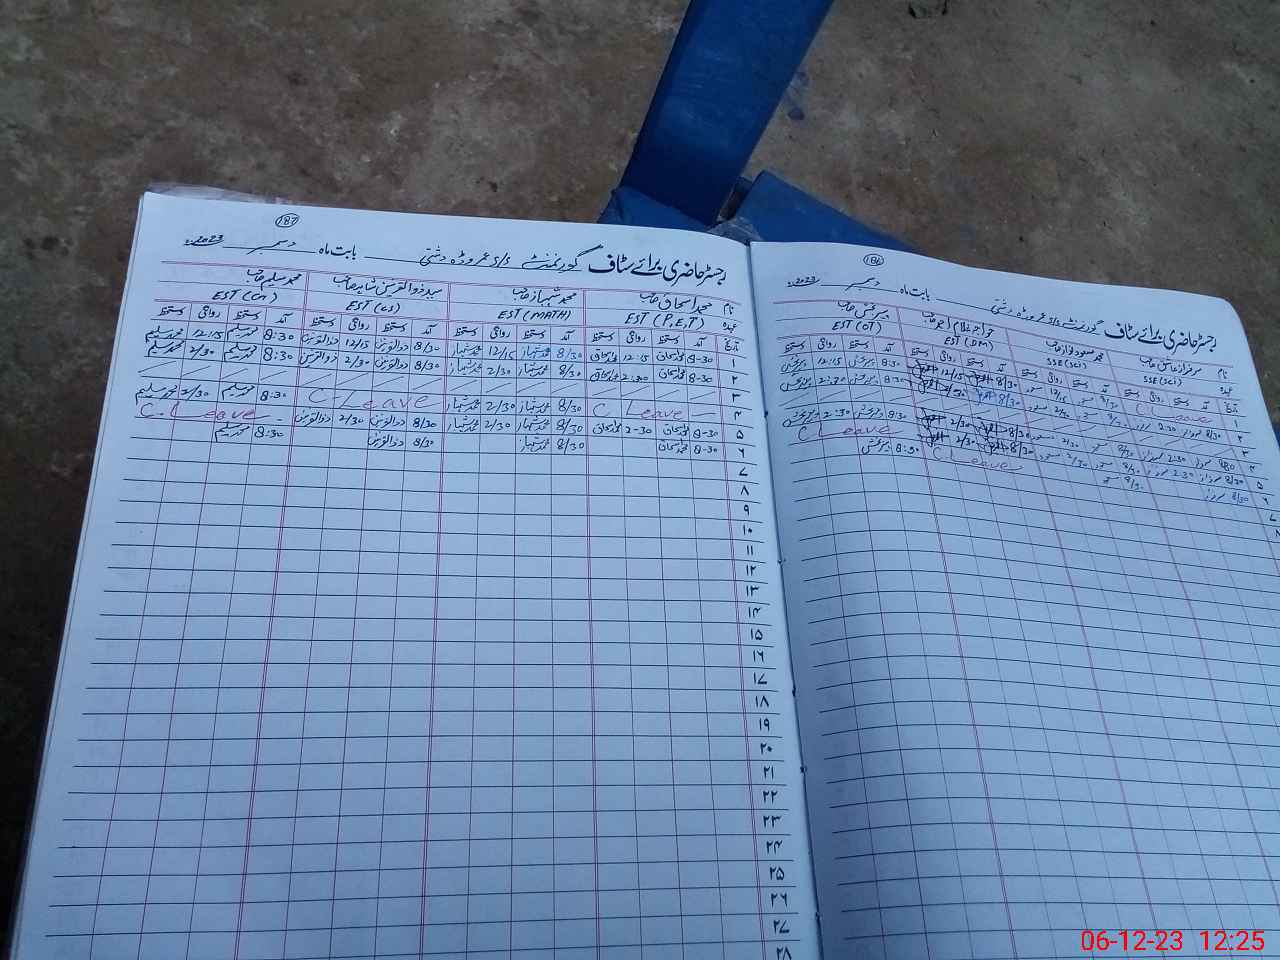 186
رجسٹر حاضری برائے سٹاف گورنمنٹ S/S عمر وڈہ دشتی بابت ماہ دسمبر 2023ء
نام سرفراز صاحب محمد مسعود نواز صاحب خواجہ غلام صاحب
عہدہ SSE (SCi) SSE (SCi) EST (DM) EST (OT)
تاریخ آمد دستخط روانگی دستخط آمد دستخط روانگی دستخط آمد دستخط روانگی دستخط آمد دستخط روانگی دستخط
۱ C. Leave 8/30 12/15 8:30 12:15
۲ 8/30 2:30 8/30 2/30 8:30 2:30
۳
۴ 8/30 2:30 8/30 2/30 8/30 2/30 8:30 2:30
۵ 8/30 2:30 8/30 2/30 8/30 2/30 C Leave
۶ 8/30 8/30 C Leave 8:30
187
رجسٹر حاضری برائے سٹاف گورنمنٹ S/S عمر وڈہ دشتی بابت ماہ دسمبر 2023ء
نام محمد اسحاق صاحب محمد شہباز صاحب سید ذوالقرنین شاہ صاحب محمد سلیم صاحب
عہدہ EST (P.E.T) EST (MATH) EST (CS) EST (CM)
تاریخ آمد دستخط روانگی دستخط آمد دستخط روانگی دستخط آمد دستخط روانگی دستخط آمد دستخط روانگی دستخط
۱ 8-30 محمد اسحاق 12:15 محمد اسحاق 8/30 محمد شہباز 12/15 محمد شہباز 8/30 ذوالقرنین 12/15 ذوالقرنین 8:30 محمد سلیم 12:15 محمد سلیم
۲ 8-30 محمد اسحاق 2:30 محمد اسحاق 8/30 محمد شہباز 2/30 محمد شہباز 8/30 ذوالقرنین 2/30 ذوالقرنین 8:30 محمد سلیم 2/30 محمد سلیم
۳
۴ C Leave 8/30 محمد شہباز 2/30 محمد شہباز C-Leave 8:30 محمد سلیم 2/30 محمد سلیم
۵ 8-30 محمد اسحاق 2-30 محمد اسحاق 8/30 محمد شہباز 2/30 محمد شہباز 8/30 ذوالقرنین 2/30 ذوالقرنین C. Leave
۶ 8-30 محمد اسحاق 8/30 محمد شہباز 8/30 ذوالقرنین 8:30 محمد سلیم
۷
۸
۹
۱۰
۱۱
۱۲
۱۳
۱۴
۱۵
۱۶
۱۷
۱۸
۱۹
۲۰
۲۱
۲۲
۲۳
۲۴
۲۵
۲۶
۲۷
۲۸
06-12-23 12:25